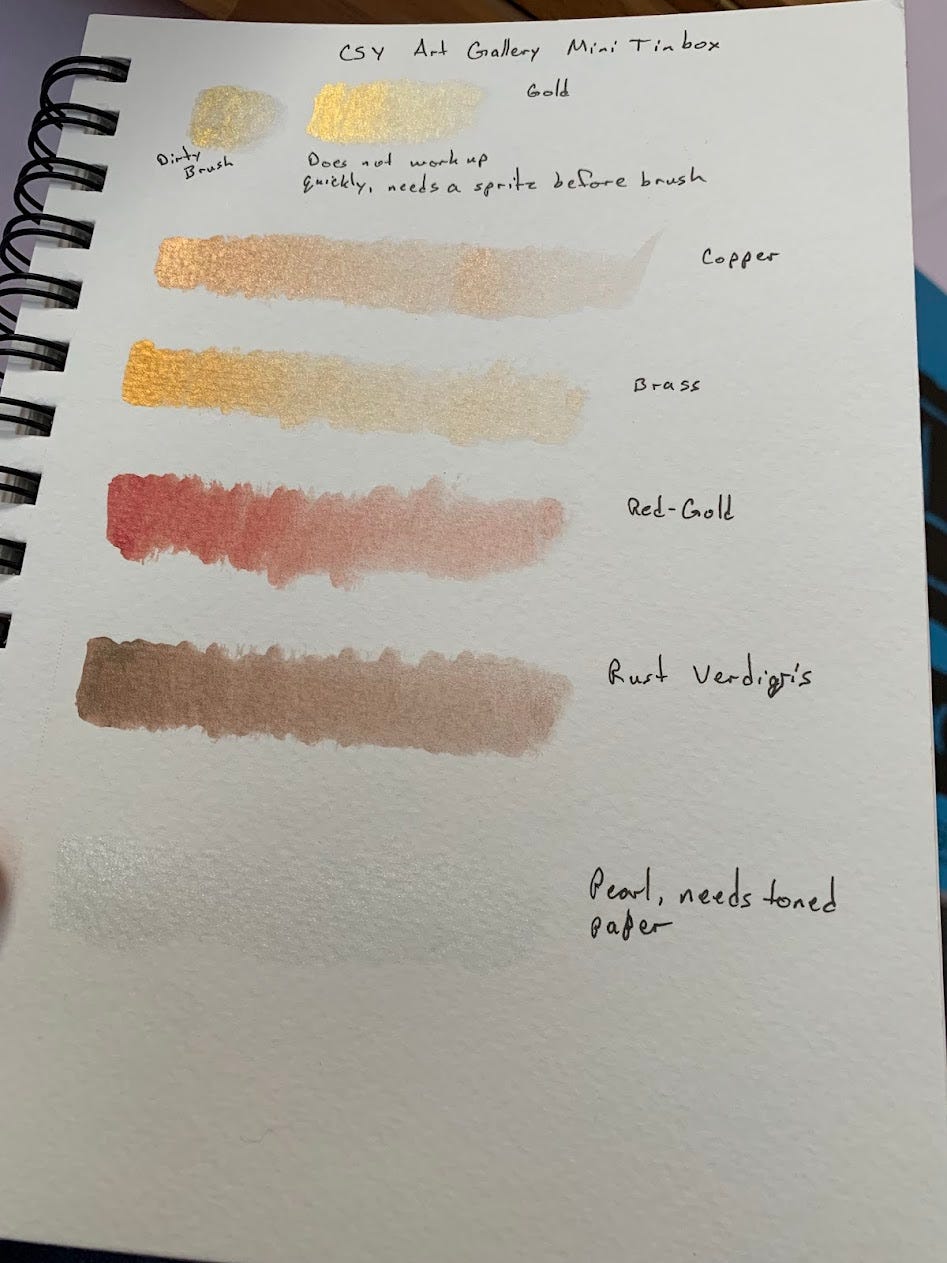 CSY Art Gallery Mini Tinbox
Gold
Dirty
Brush
Does not work up
Quickly, needs a spritz before brush
Copper
Brass
Red-Gold
Rust Verdigris
Pearl, needs toned
paper